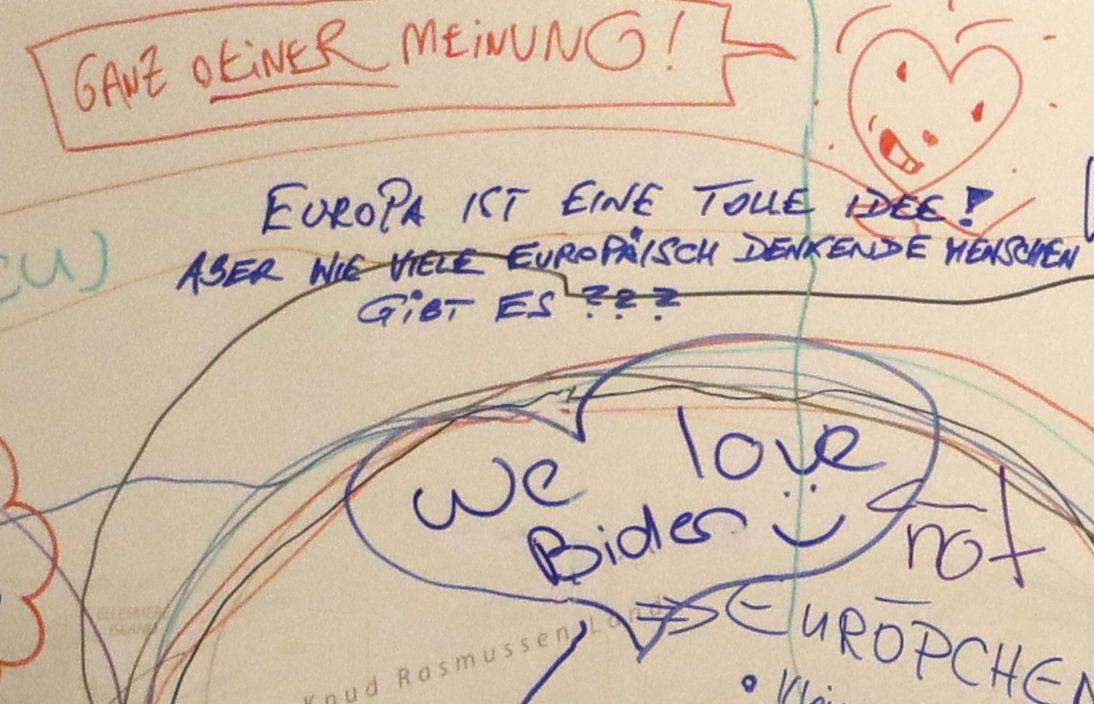 GANZ DEINER MEINUNG!
EUROPA IST EINE TOLLE IDEE!
ABER WIE VIELE EUROPÄISCH DENKENDE MENSCHEN
GIBT ES ???
CU)
we love
Biden
not
ELLESMERE
ISLAND
Knud Rasmussen Land
EURÖPCHEN